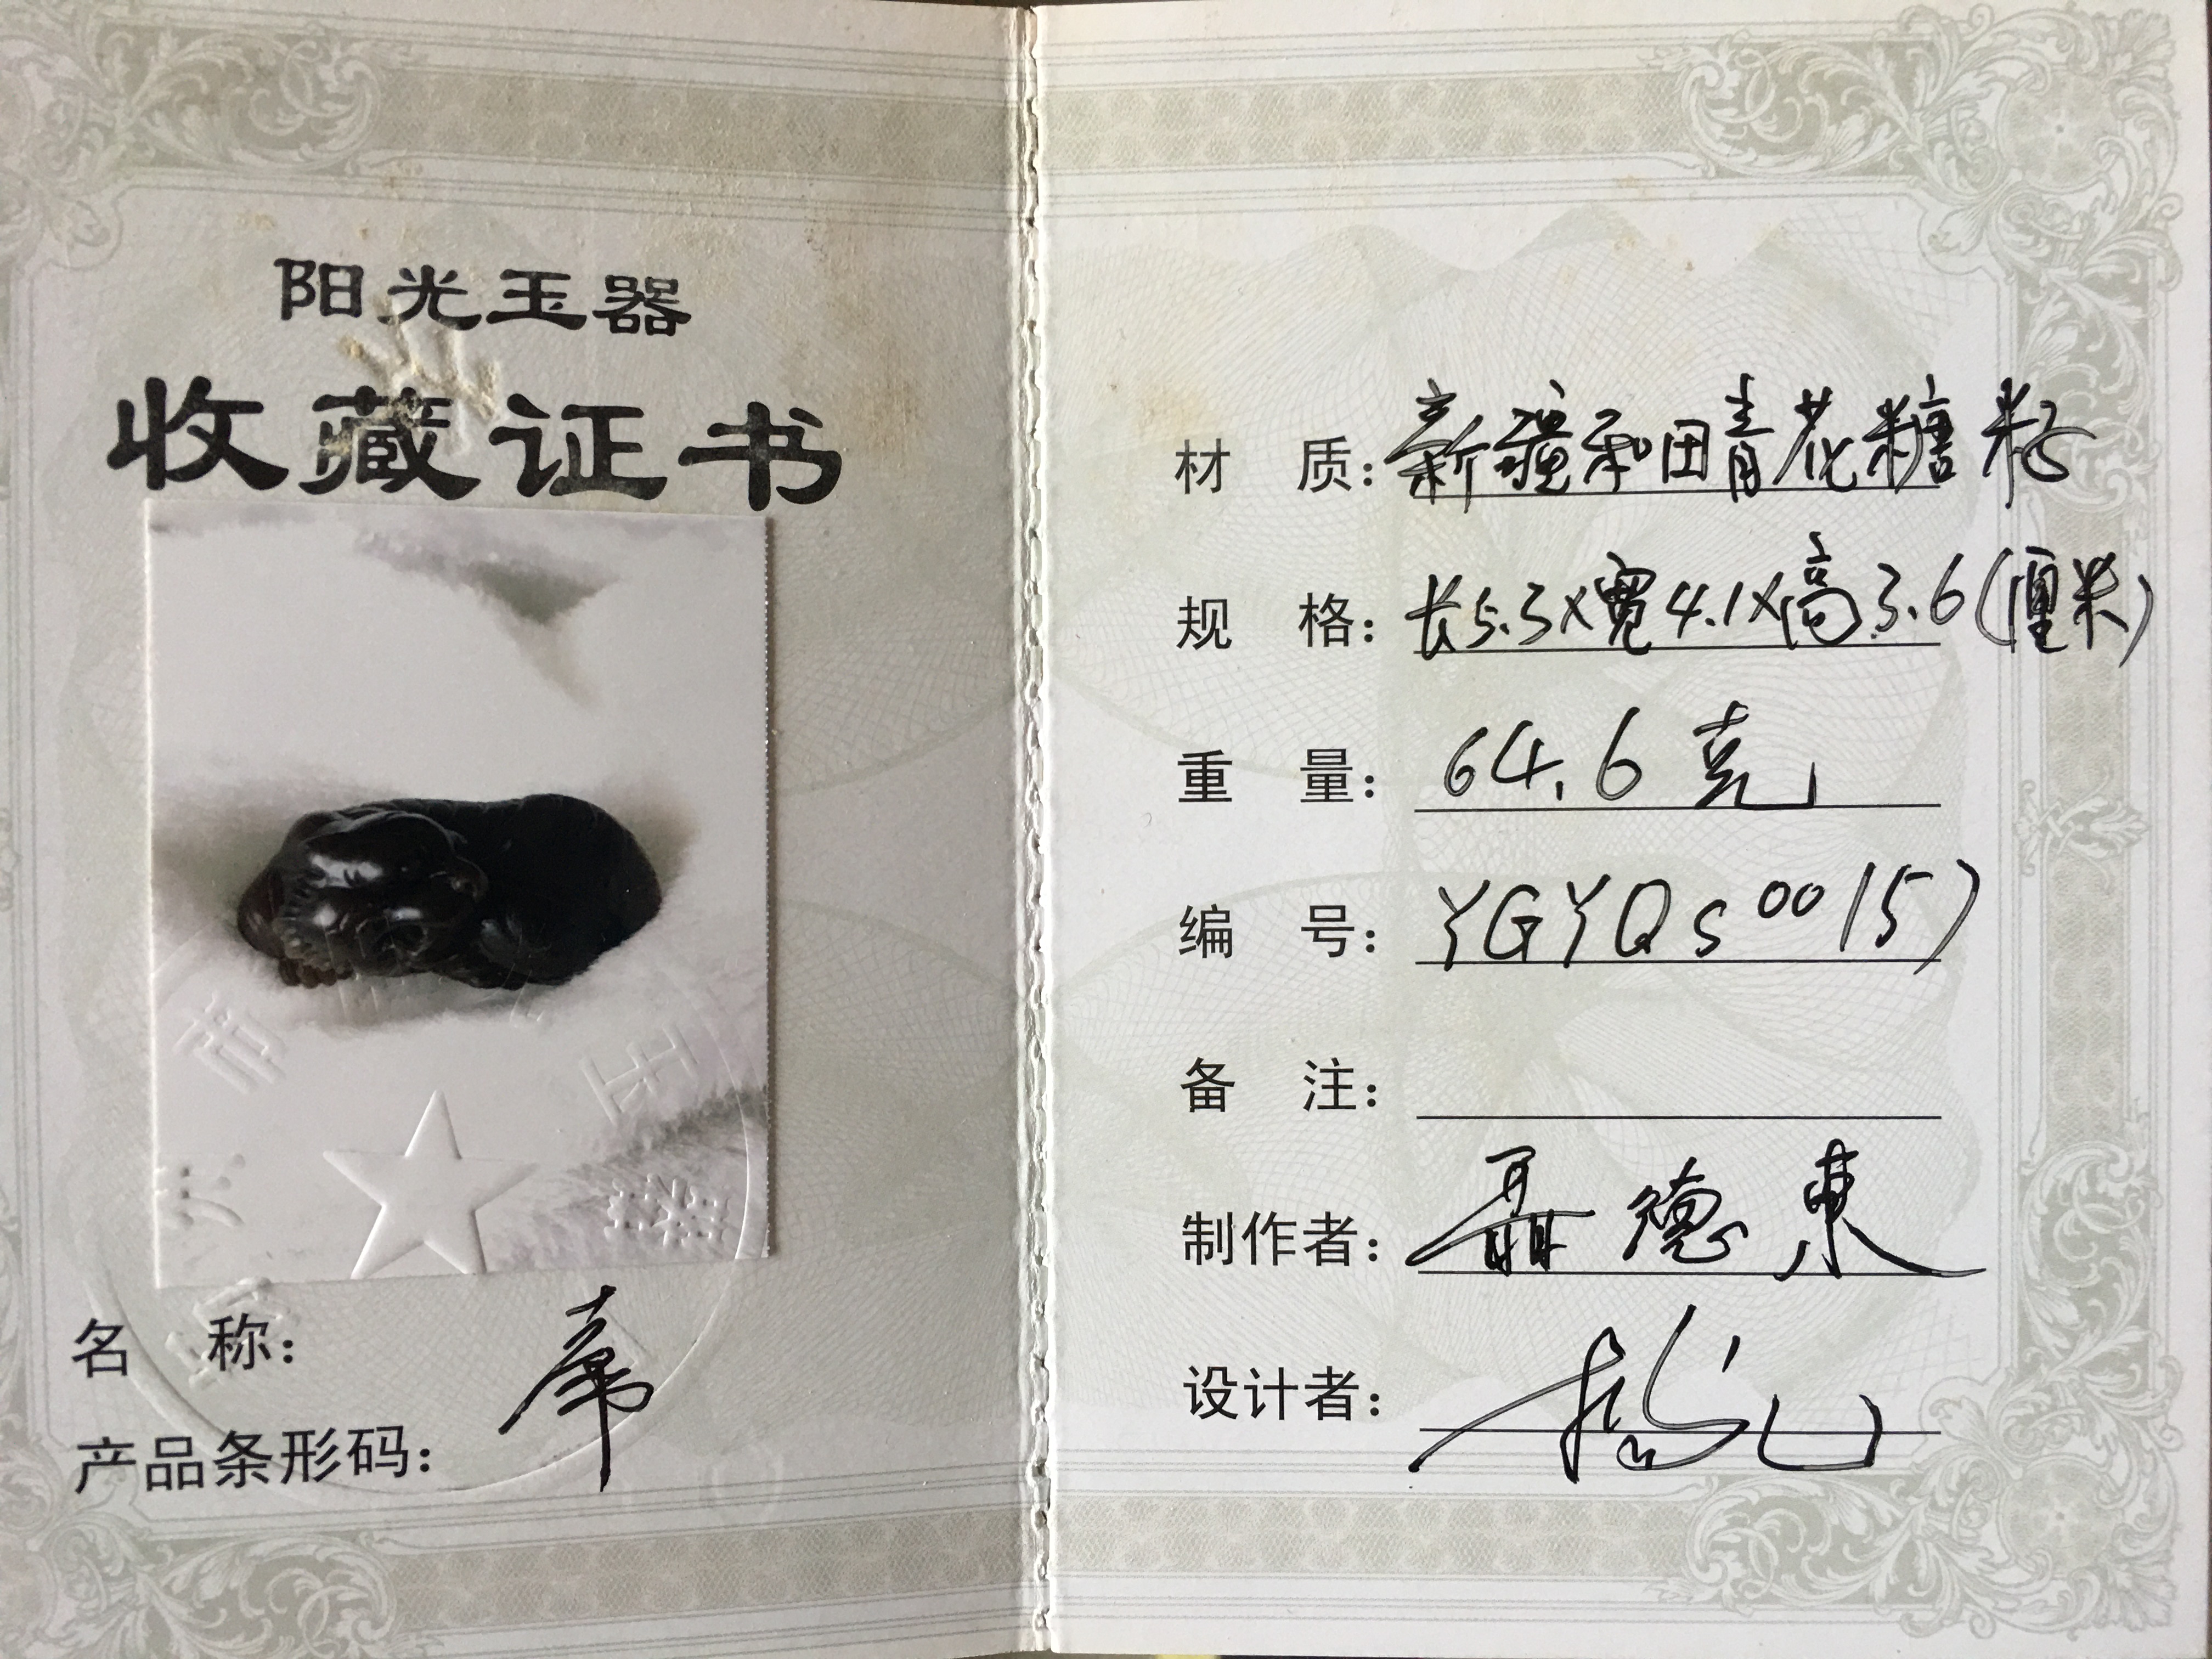 阳光玉器
收藏证书
名 称:
产品条形码:
材 质: 新疆和田青花糖籽
规 格: 长5.3x宽4.1x高3.6(厘米)
重 量: 64.6克
编 号: YGYQS00157
备 注:
制作者: 聂德東
设计者: